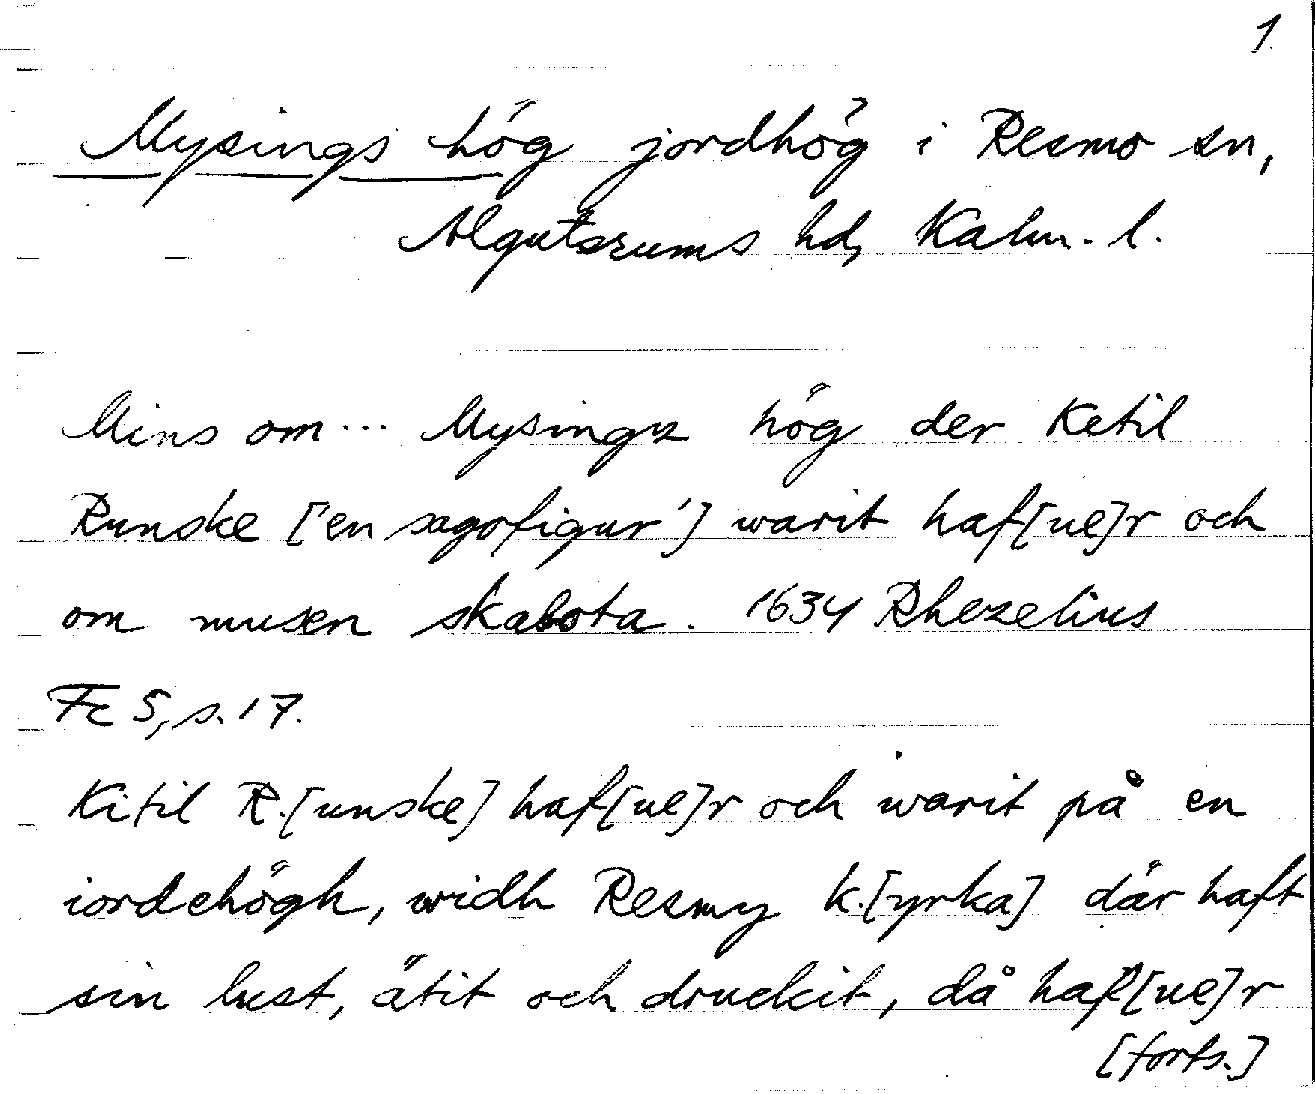 1
Mysings hög jordhög i Resmo sn,
Algutsrums hd, Kalm. l.
Mins om... Mysingz hög der Ketil
Runske ['en sagofigur'] warit haf[ue]r och
om musen skabota. 1634 Rhezelius
Fc 5, s. 17.
Kitil R.[unske] haf[ue]r och warit på en
iordehögh, widh Resmy k.[yrka] där haft
sin lust, ätit och druckit, då haf[ue]r
[forts.]